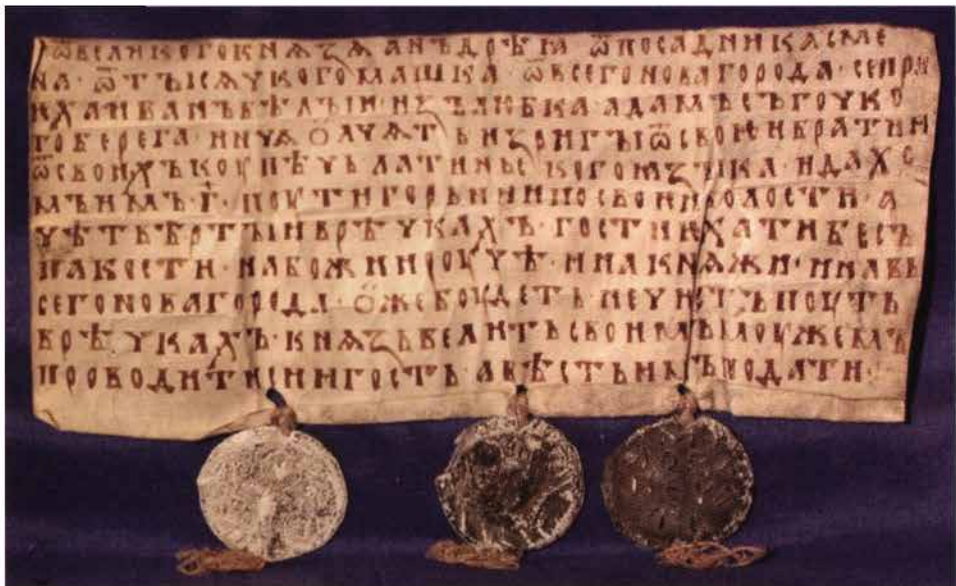 ѿ великого кнѧзѧ анъдрѣꙗ ѿ посадника сме
на · ѿ тысѧцкого машка · ѿ всего новагорода · се при
иха иванъ бѣлыи · изъ любка · адамъ съ гоцко
го берега · инцѧ олцѧть из ригы ѿ своеи братии
ѿ своихъ коупѣць латиньского ꙗзыка · и дахо
мъ имъ · г҃ · поути горьнии по своеи волости · а
цѣтвьртыи в рѣцкахъ · гости ихати бесъ
пакости · на божии роуцѣ · и на кнѧжи · и на вь
сего новагорода · оже боудеть · не цистъ поуть
в рѣцкахъ · кнѧзь велить своимъ моужемъ
проводити сии гость · а вѣсть имъ подати ·